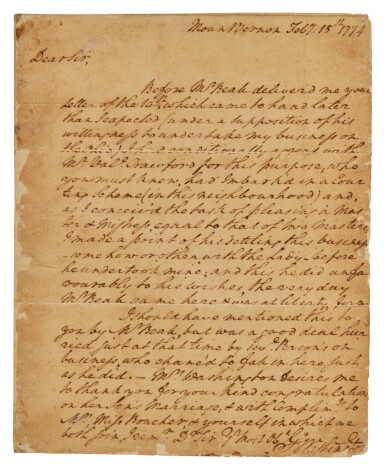 Mount Vernon Feby. 15th 1774
Dear Sir,
Before Mr Beall deliverd me your
letter of the which came to hand later
than I expected (under a supposition of his
willingness to undertake my business on
the Ohio) I had conditionally agreed with
Mr Vale Crawford for this purpose, who
you must know, had Imbarkd in a Cour
ting Scheme (in this neighbourhood) and,
as I conceivd the task of pleasing a Mas
ter & Mistress, equal to that of two Masters,
I made a point of his settling this business
some how or other, with the Lady before
he undertook mine; and this he did unfa
vourably to his wishes, the very day
Mr Beall came here
I should have mentioned this to
you by Mr Beall, but was a good deal hur
ried just at that time by sevl Person's on
business, who chanc'd to fall in here just
as he did. — Mrs Washington desires me
to thank you for your kind congratulations
on her Son's Marriage, & with Complimts to
Mrs & Miss Boucher & yourself in which we
both join, I am Dr Sir Yr Most Obt
Go Washington